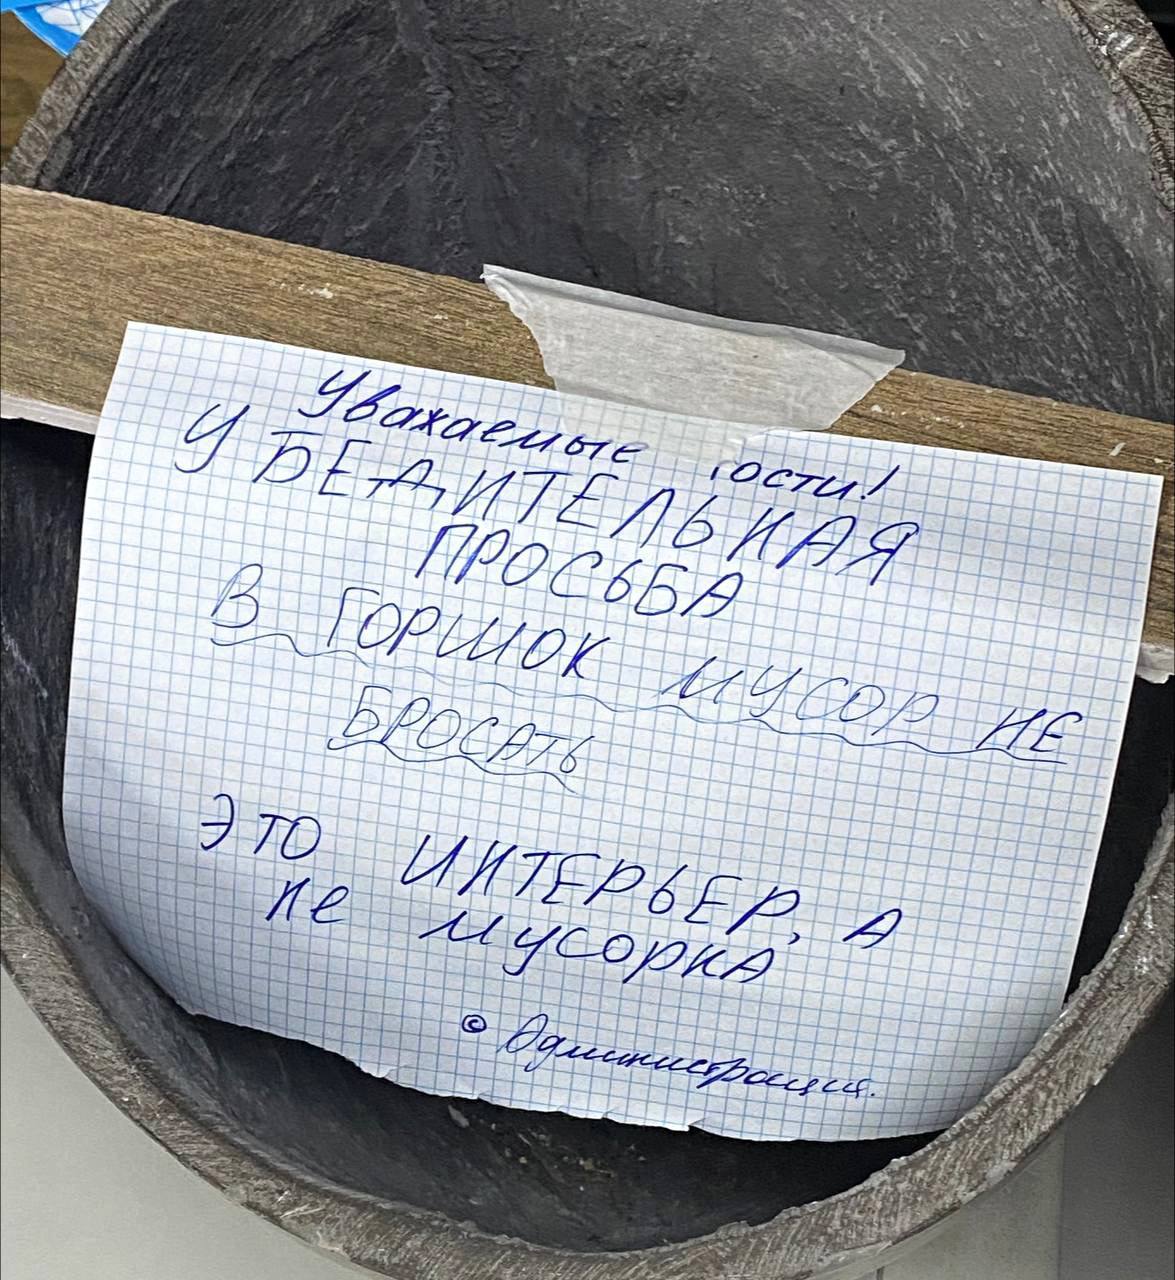 Уважаемые гости!
УБЕДИТЕЛЬНАЯ
ПРОСЬБА
В ГОРШОК МУСОР НЕ
БРОСАТЬ
ЭТО ИНТЕРЬЕР, А
не мусорка
© Администрация.